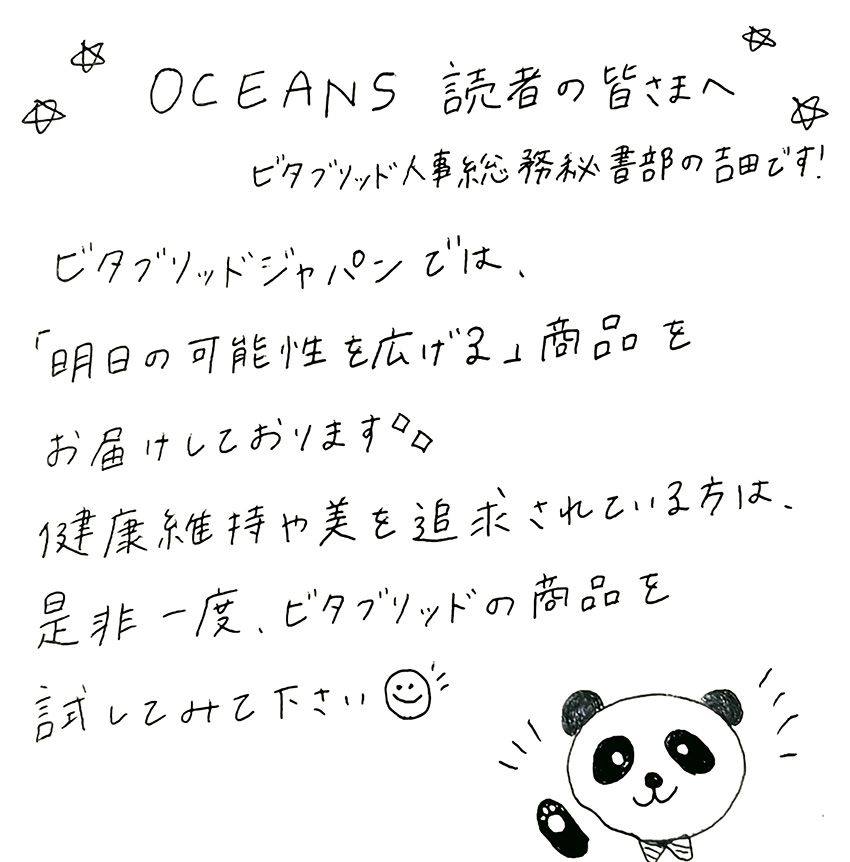 OCEANS 読者の皆さまへ
ビタブリッド人事総務秘書部の吉田です!
ビタブリッドジャパンでは、
「明日の可能性を広げる」商品を
お届けしております
健康維持や美を追求されている方は、
是非一度、ビタブリッドの商品を
試してみて下さい